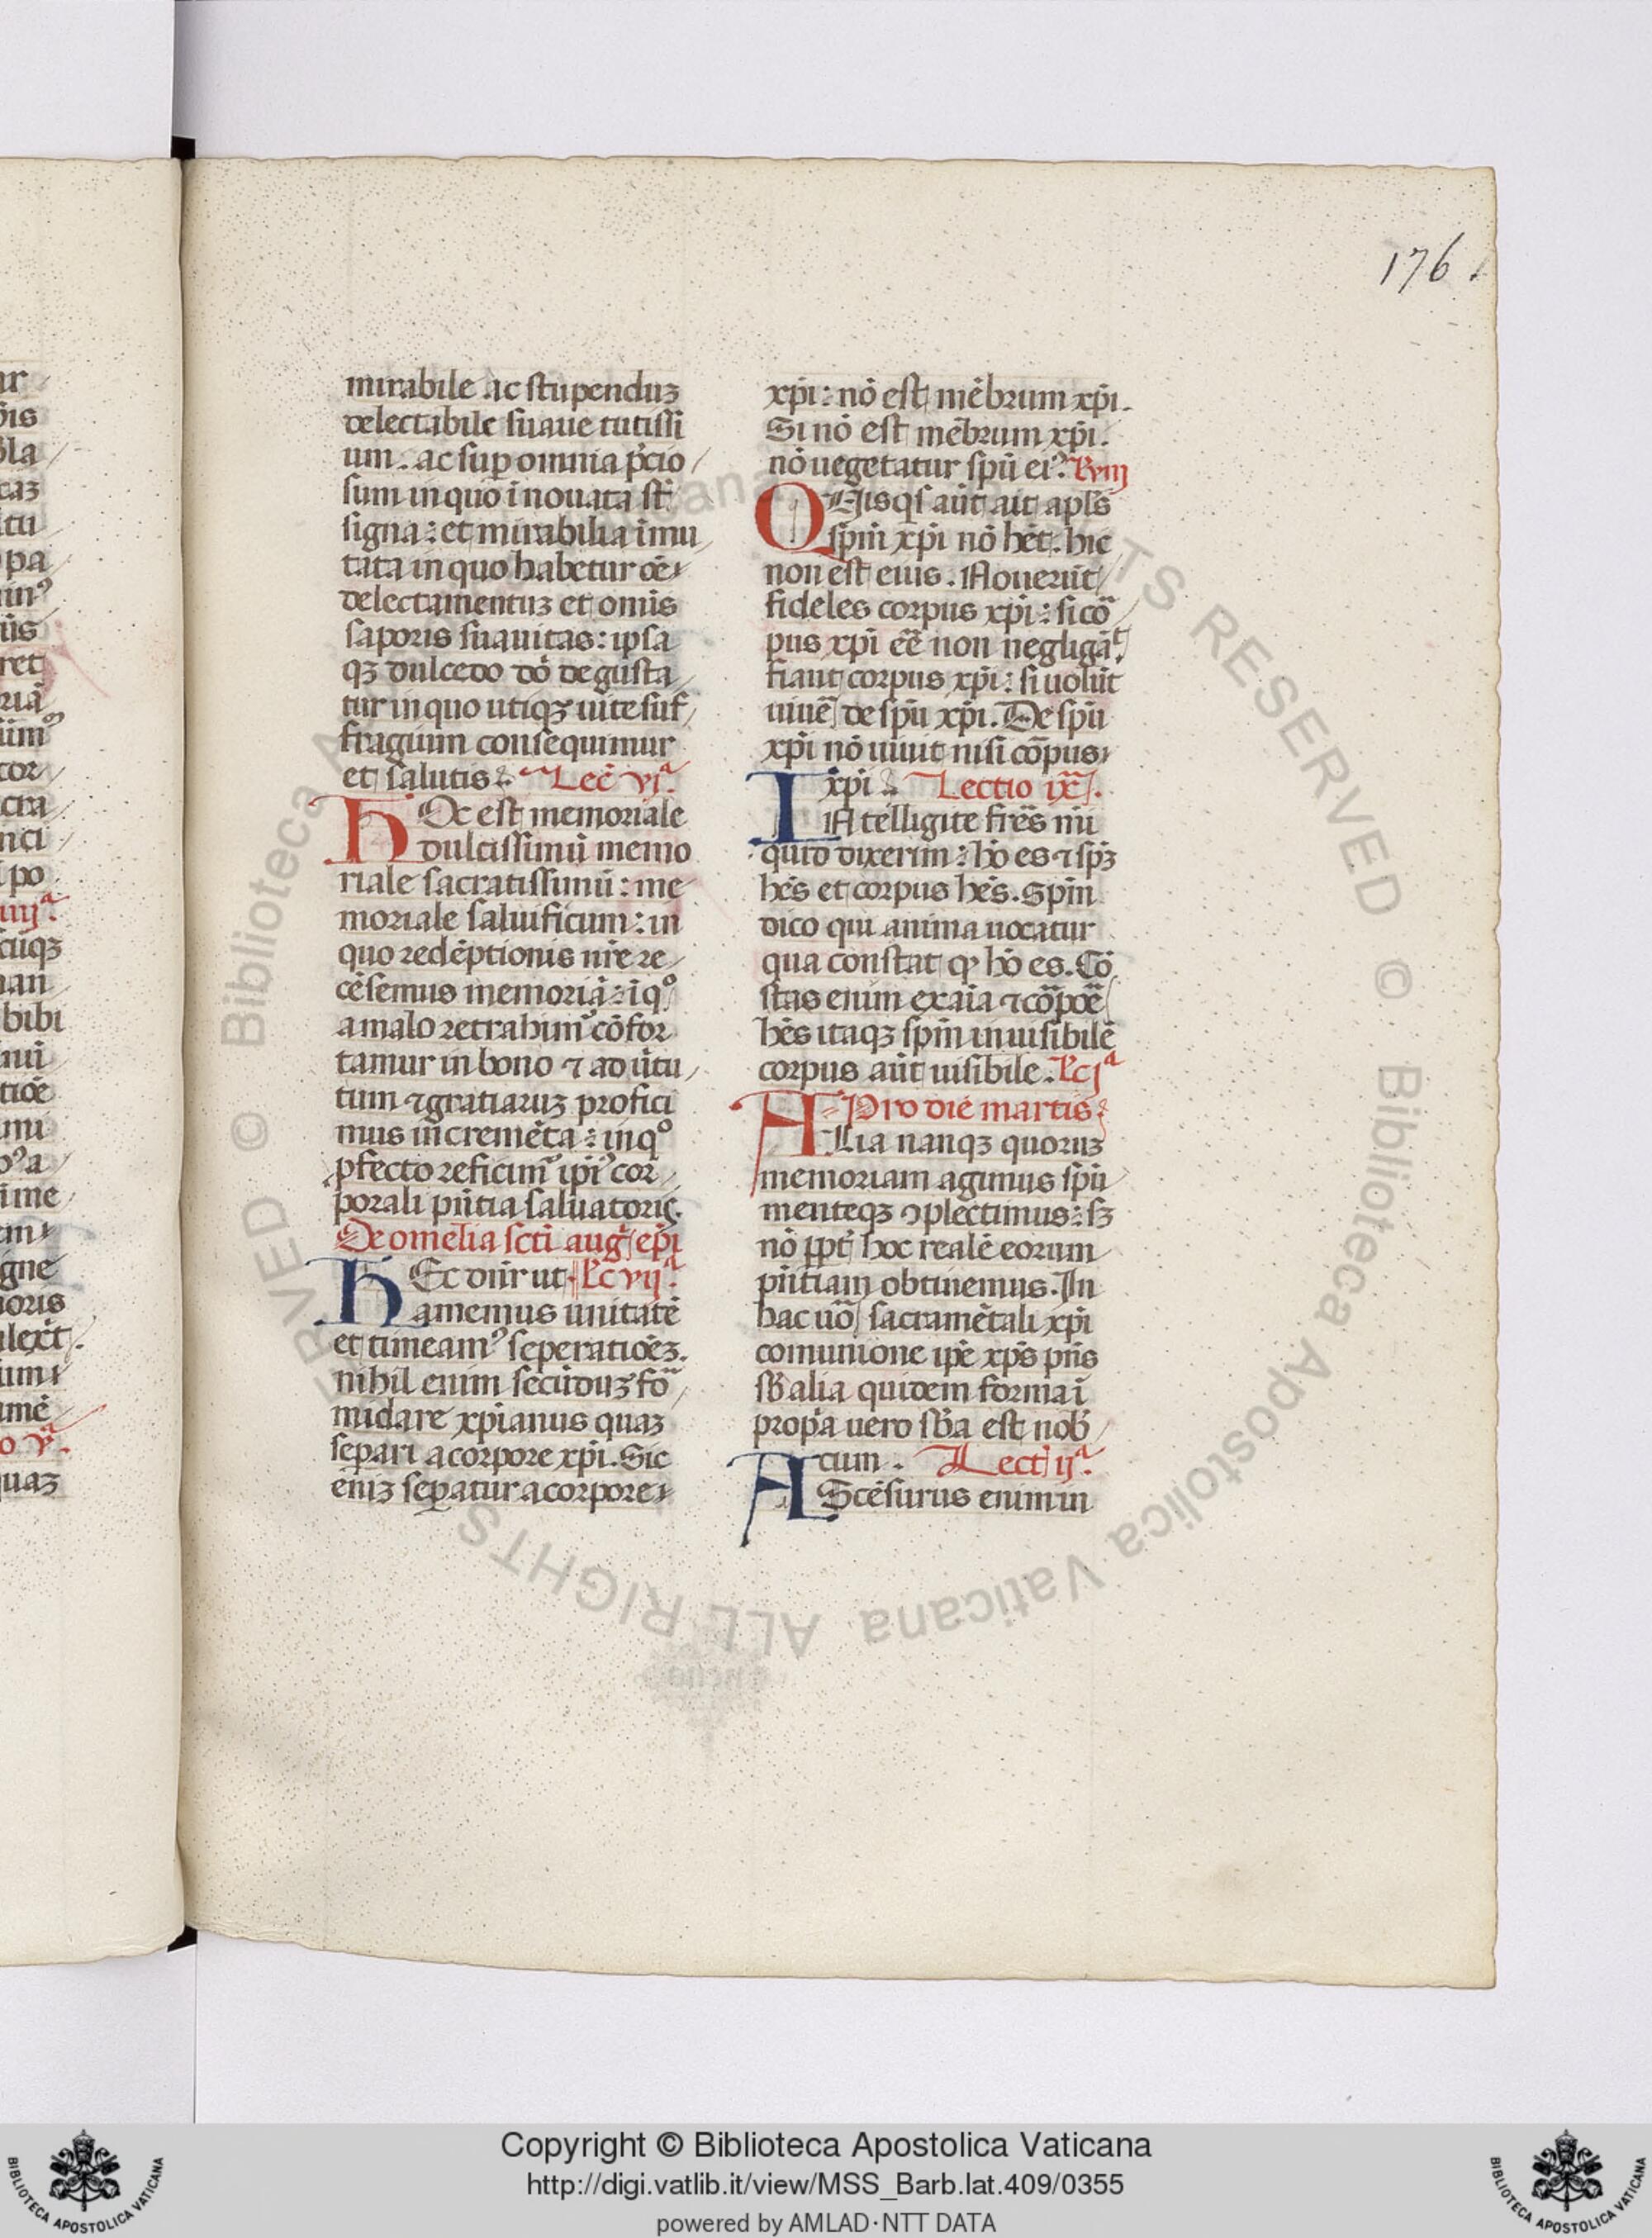 176
mirabile ac stupenduʒ
delectabile suaue tutissi
um. ac sup omnia p̄cio
sum in quo īnouata st̄
signa: et mirabilia īmu
tata in quo habetur oē
delectamentuʒ et omīs
saporis suauitas: ipsa
qʒ dulcedo dō degusta
tur in quo utiqʒ uite suf
fragium consequimur
et salutis: Lec̄ vjᵃ.
HOc est memoriale
dulcissimū memo
riale sacratissimū: me
moriale saluificum: in
quo redēptionis nr̄e re
cēsemus memoriā: ī qᵒ
a malo retrahimꝰ cōfor
tamur in bono ⁊ ad ūtu
tum ⁊ gratiaruʒ profici
mus incremēta: in qᵒ
pfecto reficimꝰ ip̄iꝰ cor
porali pn̄tia saluatoris.
De omelia scti auḡ ep̄i
HEc dn̄r ut Lc vijᵃ.
amemus unitatē
et timeamꝰ seperatiōeʒ.
nihil enim secūduʒ fō
midare xp̄ianus quaʒ
separi a corpore xp̄i. Sic
eniʒ sepatur a corpore
xp̄i: nō est mēbrum xp̄i.
Si nō est mēbrum xp̄i.
nō uegetatur spū eiꝰ. Lc viij
QUisqs aūt ait apl̄s
spm̄ xp̄i nō hēt. hic
non est eius. Nouerūt
fideles corpus xp̄i: si cō
pus xp̄i eē non negligāt.
fiant corpus xp̄i: si uolūt
uiuē de spū xp̄i. De spū
xp̄i nō uiuit nisi cōpus
xp̄i: Lectio ixᵃ.
INtelligite fr̄es mi
quid dixerim: hō es ⁊ spʒ
hēs et corpus hēs. Spm̄
dico qui anima uocatur
qua constat qꝫ hō es. Cō
stas enim ex aīa ⁊ cōpoē
hēs itaqʒ spm̄ inuisibilē
corpus aūt uisibile. Lc jᵃ
Pro die martis:
ALia nanqʒ quoruʒ
memoriam agimus spū
menteqʒ ꝯplectimus: sʒ
nō ppt̄ hoc realē eorum
pn̄tiam obtinemus. In
hac uō sacramētali xp̄i
comunione ip̄e xp̄s pn̄s
sb̄ alia quidem forma ī
propa uero sb̄a est nob̄
cum. Lect ijᵃ.
AScēsurus enim in
Copyright © Biblioteca Apostolica Vaticana
http://digi.vatlib.it/view/MSS_Barb.lat.409/0355
powered by AMLAD·NTT DATA